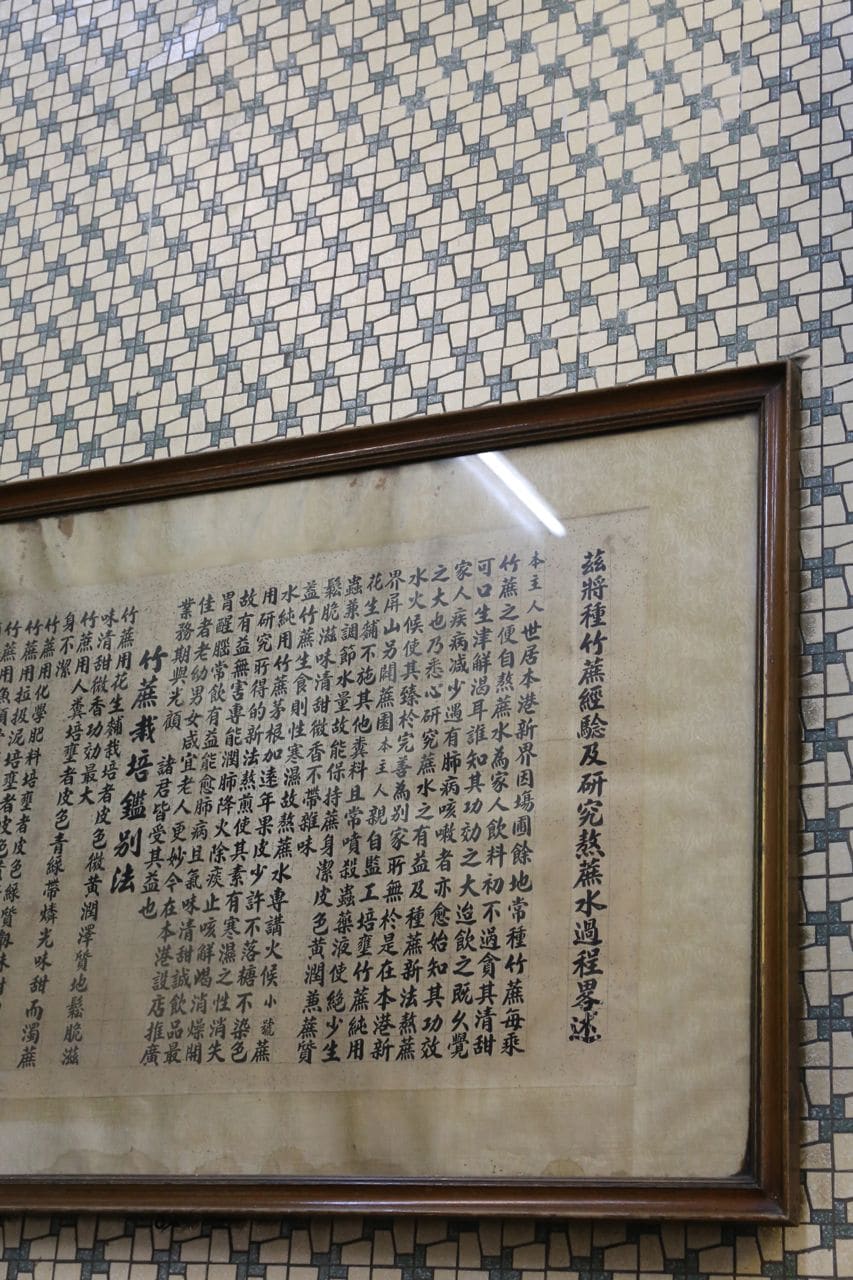 茲將種竹蔗經驗及研究熬蔗水過程畧述
本主人世居本港新界因塲圃餘地常種竹蔗每乘
竹蔗之便自熬蔗水為家人飲料初不過貪其清甜
可口生津解渴耳誰知其功効之大迨飲之既久覺
家人疾病减少遇有肺病咳嗽者亦愈始知其功效
之大也乃悉心研究蔗水之有益及種蔗新法熬蔗
水火候使其臻於完善為別家所無於是在本港新
界屏山另闢蔗園本主人親自監工培壅竹蔗純用
花生麩不施其他糞料且常噴殺蟲藥液使絶少生
蟲兼調節水量故能保持蔗身潔皮色黃潤蔗質
鬆脆滋味清甜微香不帶雜味
益竹蔗生食則性寒濕故熬蔗水專講火候小號蔗
水純用竹蔗茅根加遠年果皮少許不落糖不染色
用研究所得的新法熬煎使其素有寒濕之性消失
故有益無害專能潤肺降火除痰止咳解渴消燥開
胃醒腦常飲有益能愈肺病且氣味清甜誠飲品最
佳者老幼男女咸宜老人更妙今在本港設店推廣
業務期與光顧 諸君皆受其益也
竹蔗栽培鑑別法
竹蔗用花生麩栽培者皮色微黃潤澤質地鬆脆滋
味清甜微香功効最大
竹蔗用人糞培壅者皮色青綠帶燐光味甜而濁蔗
身不潔
竹蔗用化學肥料培壅者皮色綠
竹蔗用垃圾泥培壅者皮色
竹蔗用魚